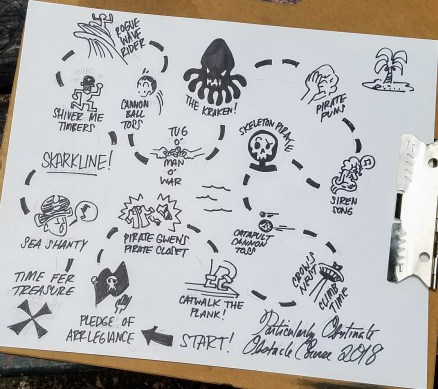 ROGUE
WAVE
RIDER
SHIVER ME
TIMBERS
CANNON
BALL
TOSS
THE KRAKEN!
PIRATE
PUNS
TUG
O'
MAN
O'
WAR
SKELETON PIRATE
SKARKLINE!
SIREN
SONG
SEA SHANTY
PIRATE GWEN'S
PIRATE CLOSET
CATAPULT
CANNON
TOSS
CROW'S
NEST
CLIMB
TIME
TIME FER
TREASURE
CATWALK THE
PLANK!
PLEDGE OF
ARRLEGIANCE
START!
Particularly Obstinate
Obstacle Course 2018